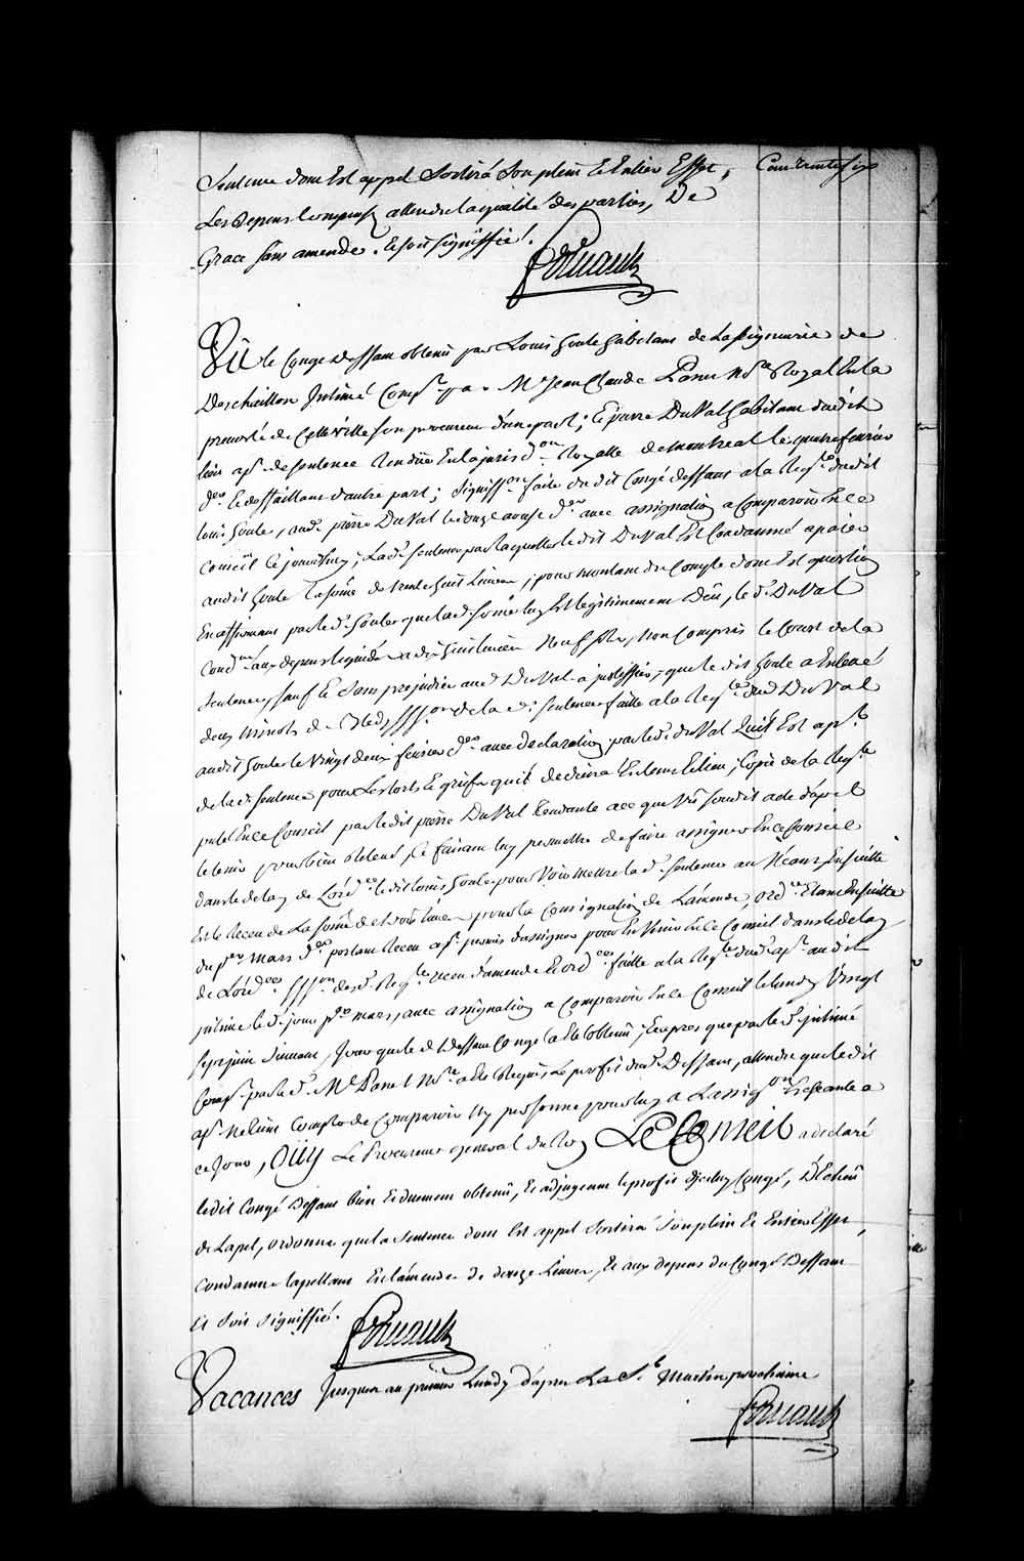 Sentence dont Est appel Sortira Son plein Et Entier Effet, Cent trente six
Les depens Compensez attendu la qualité des parties, De
Grace sans amende. Et soit signiffié.
Foucault
Vû le Congé deffaut obtenu par Louis houle habitant de La seigneurie de
Deschaillon Intimé Comp.t par Me. Jean Claude Panet No.re Royal En la
prevosté de Cette ville son procureur d'une part; Et pierre Duval habitant dudit
lieu ap.t de sentence Rendüe En la jurisd.on Royalle de Montreal le quatre fevrier
d.er Et deffaillant d'autre part; signiff.on faite du dit Congé deffaut a la Req.te dudit
louis houle, aud. pierre Duval le onze aoust d.er avec assignation a Comparoir En ce
Conseil Ce jourd'huy; La d.e sentence par laquelle le dit Duval Est Condamné a paier
audit houle la somme de trente huit Livres, pour montant du Compte dont Est question
En affirmant par le d. houle que la d. somme luy Est legitimement düe, le d. Duval
Cond.né aux depens liquidés a dix huit livres Neuf sols, Non Compris le Cout de la
sentence, sauf Et sans prejudice aud. Duval a justiffier, que le dit houle a Enlevé
deux minots de bled, sig.on de la d. sentence faite a la Req.te dud. Duval
audit houle le vingt deux fevrier d.er avec declaration par le d. duval quil Est ap.t
de la d. sentence pour les torts Et griefs quil deduira En tems Et lieu; Copie de la Req.te
par le dit pierre Duval Tendante a ce que
le tenir pour bien Relevé, Et faisant luy permettre de faire assigner En ce Conseil
dans le delay de L'ord.ce le dit louis houle pour voir mettre la d. sentence au Neant, Ensuitte
Est le Receu de La somme de trois livres pour la Consignation de L'amende, ord.ce Etant Ensuitte
du p.er mars d.er portant Receu ap.t permis d'assigner pour En venir En ce Conseil dans le delay
de L'ord.ce sig.on desd. Req.te receu d'amende Et ord.ce faitte a la Req.te dud. ap.t au dit
intimé le d. jour p.er mars, avec assignation a Comparoir En ce Conseil le lundy vingt
sept juin suivant, jour que le d. deffaut Congé a Eté obtenu; Et apres que par le d. intimé
Comp.t par le d. Me. Panet No.re a Eté Requis Le profit dud. Deffaut, attendu que le dit
ap.t ne tient Compte de Comparoir Ny personne pour luy a L'assig.on Echeante a
ce Jour, Oüy Le Procureur general du Roy Le Conseil a declaré
ledit Congé Deffaut bien Et duement obtenu, Et adjugeant le profit d'iceluy Congé, Déchû
de Lapel, ordonne que la sentence dont Est appel Sortira Son plein Et Entier Effet,
Condamne lapellant En l'amende de douze Livres, Et aux depens du Congé Deffaut
Et Soit signiffié.
Foucault
Vacances Jusques au premier Lundy d'apres La St. Martin prochaine
Foucault